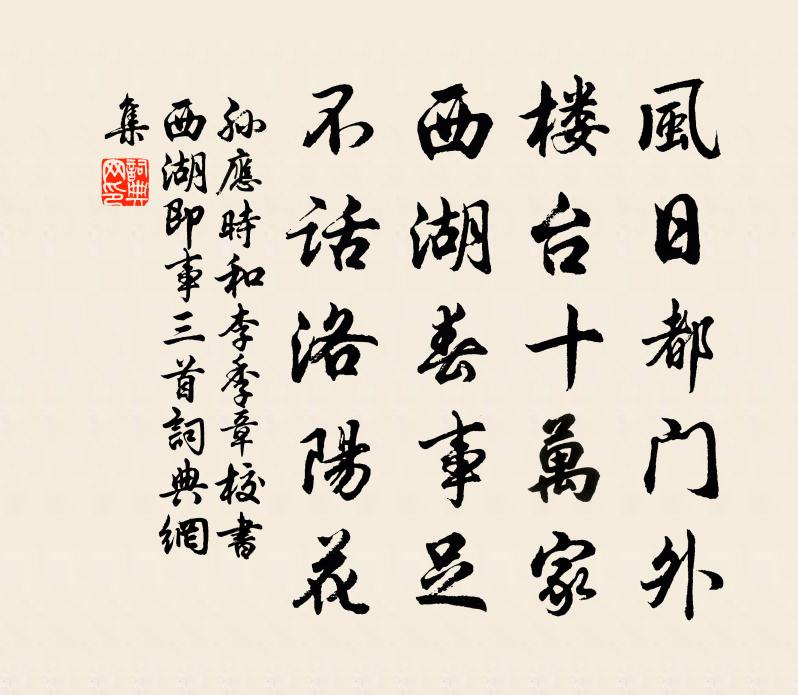 風日都门外
楼台十萬家
西湖春事足
不话洛陽花
孙應時和李季章校書
西湖即事三首詞典網
集
詞典
网印